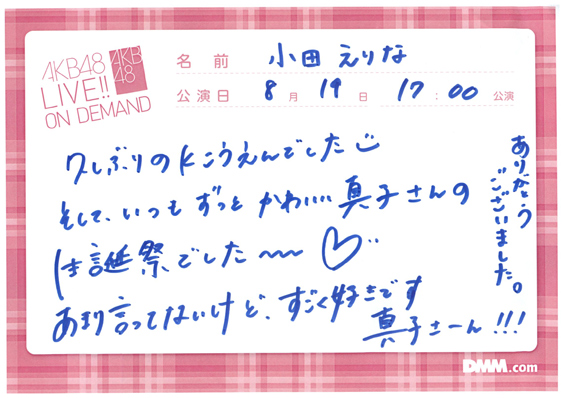 AKB48
LIVE!!
ON DEMAND
AKB
48
名前 小田えりな
公演日 8月19日 17:00公演
久しぶりのKこうえんでした
そして、いつもずっとかわいい真子さんの
生誕祭でした〜〜♡
あまり言ってないけど、すごく好きです
真子さーん!!!
ありがとう
ございました。
DMM.com